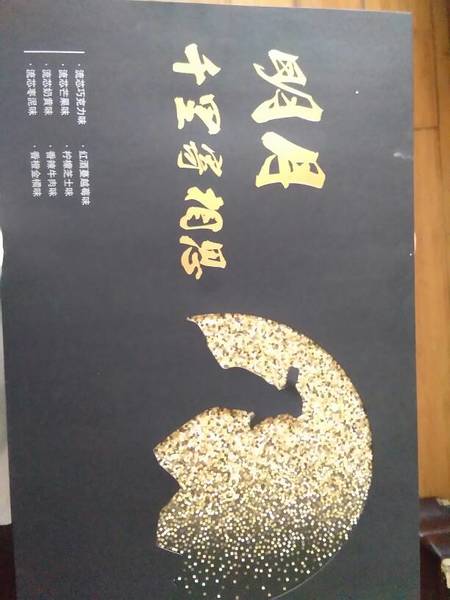 明月
千里寄相思
·流芯巧克力味 ·红酒蔓越莓味
·流芯芒果味 ·柠檬芝士味
·流芯奶黄味 ·香辣牛肉味
·流芯枣泥味 ·香橙金橘味